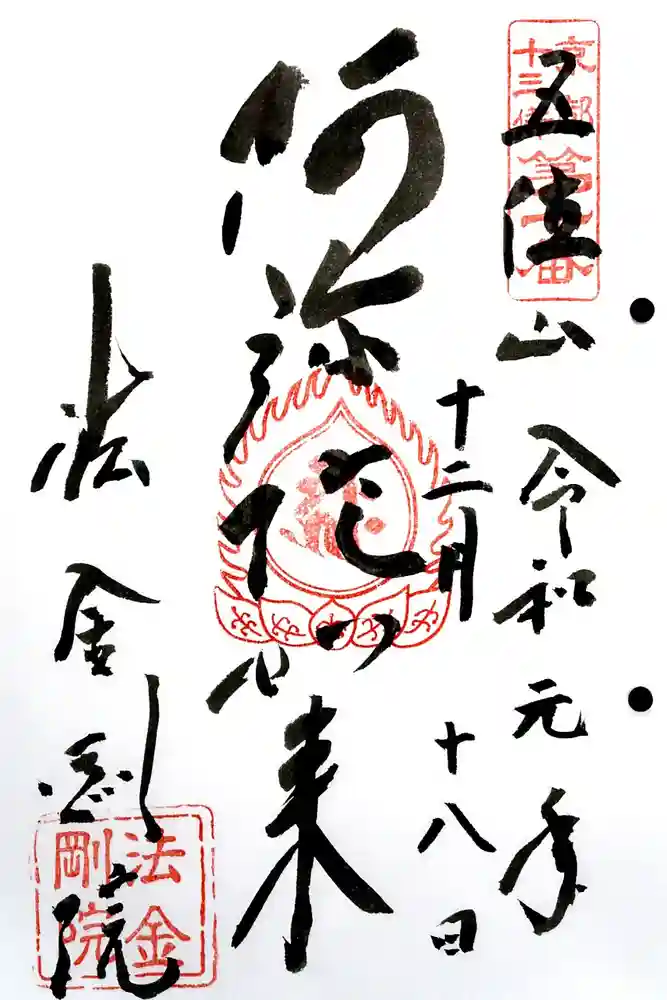 京都
十三佛
第十番
五位山 令和元年
十二月十八日
阿弥陀如来
法金剛院
法金
剛院